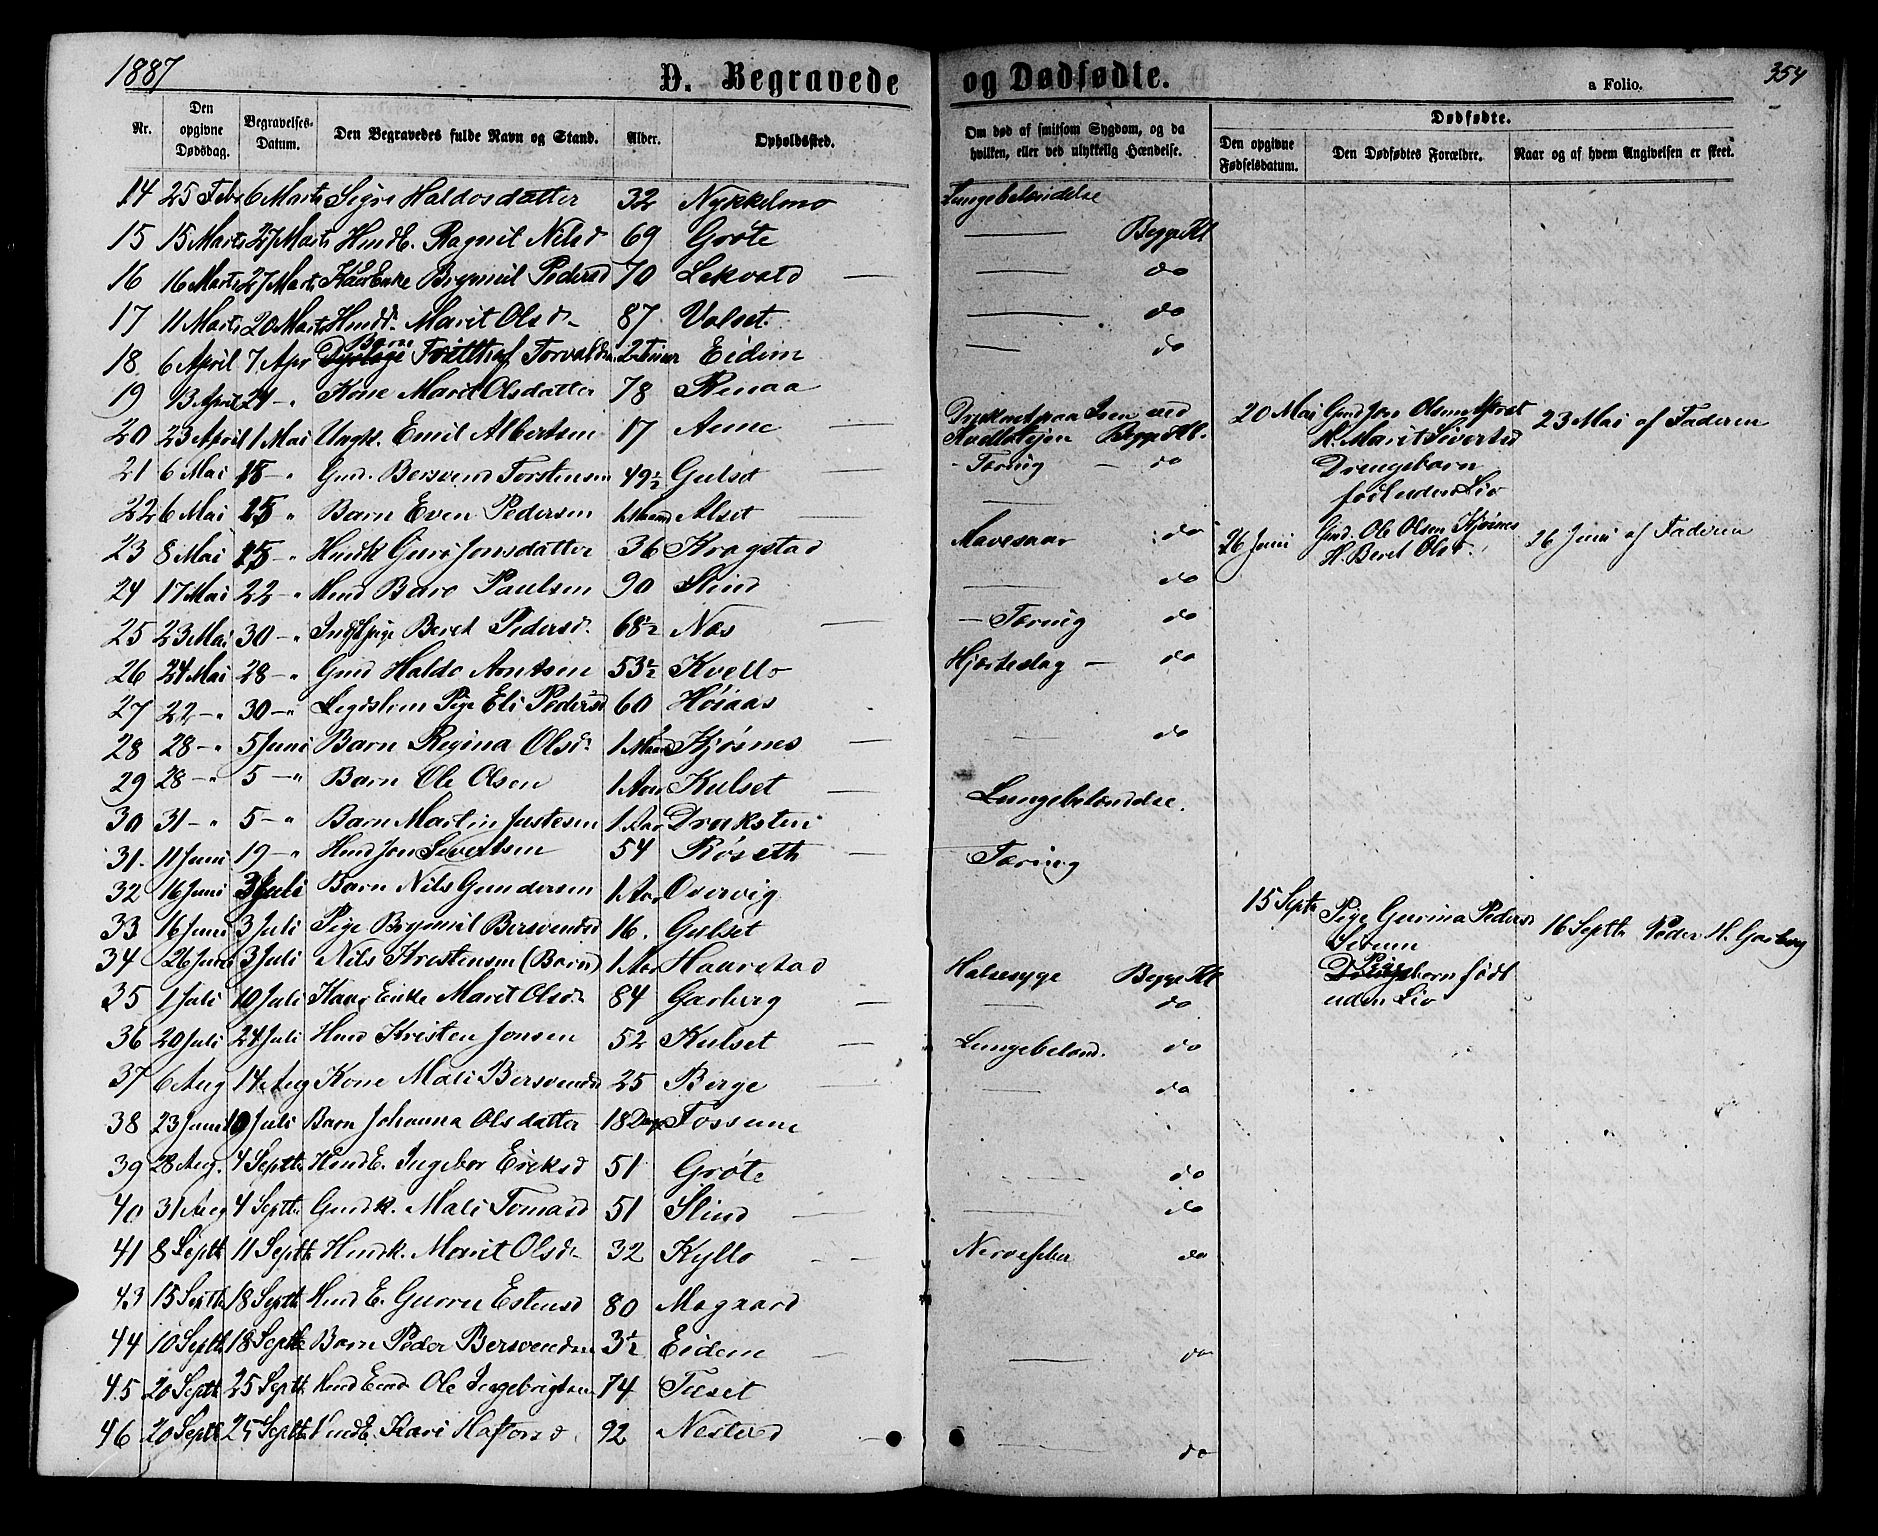 1887
D. Begravede og Dødfødte.
a Folio.
354
Nr.
Den opgivne Dødsdag.
Begravelses-Datum.
Den Begravedes fulde Navn og Stand.
Alder.
Opholdssted.
Om død af smitsom Sygdom, og da hvilken, eller ved ulykkelig Hændelse.
Dødfødte.
Den opgivne Fødselsdatum.
Den Dødfødtes Forældre.
Naar og af hvem Angivelsen er skeet.
14 25 Feb 6 Marts Sigri Haldosdatter 32 Nykkelmo Lungebetændelse
15 15 Marts 27 Marts HmdE. Ragnil Nilsd 69 Grøte — Begge Kl
16 16 Marts 27 Marts Enke Brynnil Pedersd 70 Lekvold — do
17 11 Marts 20 Marts Marit Olsd. 87 Valset — do
18 6 April 7 Apr Barn Torvalds 2 Timer Eidem — do
19 13 April 24 - " Kone Marit Olsdatter 78 Renaa
20 23 April 1 Mai Ungk. Emil Albertsen 17 Aune Druknet paa Isen ved Begge Kl.
21 6 Mai 15 - " Gmd. Bersvend Torstensen 49½ Gulset - Tæring - do
22 6 Mai 15 " Barn Even Pedersen 1 Maaned Alset —
23 8 Mai 15 " Hmdk Guro Jonsdatter 36 Kragstad Mavesaar do
24 17 Mai 22 - " Hmd Baro Paulsen 90 Slind — do
25 23 Mai 30 - " Beret Pedersd. 68½ Næs - Tæring do
26 24 Mai 28 - " Gmd Haldo Arntsen 53½ Kvello Hjerteslag - do
27 22 - " 30 - " Legdslem Pige Eli Pedersd 60 Høiaas
28 28 - " 5 Juni Barn Regina Olsd. 1 Maaned Kjøsnes — do
29 28 - " 5 - " Barn Ole Olsen 1 Aar Kulset Lungebetændelse.
30 31 - " 5 - " Barn Martin Justesen 1 Aar Draksten
31. 11 Juni 19 - " Hmd Jon Sivertsen 54 Røseth Tæring
32 16 Juni 3 Juli Barn Nils Gundersen 1 Aar Overvig
33 16 Juni 3 Juli Pige Brynnil Bersvendsd 16. Gulset
34 26 Juni 3 Juli Nils Kristensen (Barn) 1 Aar Haarstad Halsesyge Begge Kl
35 1 Juli 10 Juli Kaar Enke Marit Olsd. 84 Garberg — do
36 20 Juli 24 Juli Hmd Kristen Jonsen 52 Kulset Lungebetænd. do
37 6 Aug 14 Aug Kone Mali Bersvendsd 25 Berge — do
38 23 Juni 10 Juli Barn Johanna Olsdatter 18 Dage Fossum
39 28 Aug. 4 Septb. HmdE. Ingebor Eriksd 51 Grøte — do
40 31 Aug 4 Septb. Gmdk. Mali Tomasd 51 Slind — do
41 8 Septb 11 Septb Hmdk. Marit Olsd. 32 Kyllo Nervefeber do
43 15 Septb 18 Septb Hmd E. Gurru Estensd 80 Mogaard
44 10 Septb 18 Septb Barn Peder Bersvendsen 3½ Eidem — do
45 20 Septb 25 Septb Hmd Ole Ingebrigtsen 74 Tuset
46 20 Septb 25 Septb HmdE. Kari Haftorsd 92 Nestved — do
20 Mai Gmd Jon Olsen
K. Marit Sivertsd
Drengebarn
født uden Liv
23 Mai af Faderen
26 Juni Gmd. Ole Olsen Kjøsnes
K. Beret Olsd.
26 Juni af Faderen
15 Septb Pige Gurina Pedersd
Pige
født
uden Liv
16 Septb Peder H. Garberg